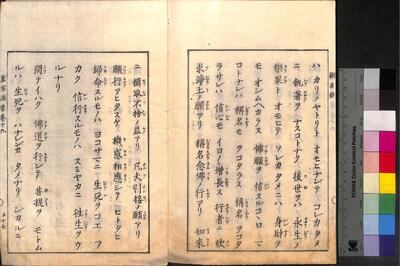 ハカリノヤトリト オモヒナシテ コレカタメ
ニ 執著ヲ ナスコトナク 後世ヲハ 永生ノ
樂果ト オモヒテ ソノカタメニハ 身財ヲ
モオシムヘカラス 佛願ヲ 信スルココロ 一
コトナレハ 稱名モ ヲコタラス 稱名 ヲコタ
ラサレハ 信心モ イヨ〱増長ス 行者ニ 欣
求淨土ノ 願アリ 稱名念佛ノ行アリ 如來
ニ 攝取不捨ノ益アリ 凡夫引接ノ願アリ
願行アヒタスケ 機感相應シテ ヒトタヒ
歸命スルモノハ ヨコサマニ 生死ヲ コエ フ
カク 信行スルモノハ スミヤカニ 往生ヲ ウ
ルナリ
問テイハク 佛道ヲ 行シテ 菩提ヲ モトム
ルハ 生死ヲ ハナレンカ タメナリ シカルニ
真宗法要巻十九
五十七
KODAK Color Control Patches